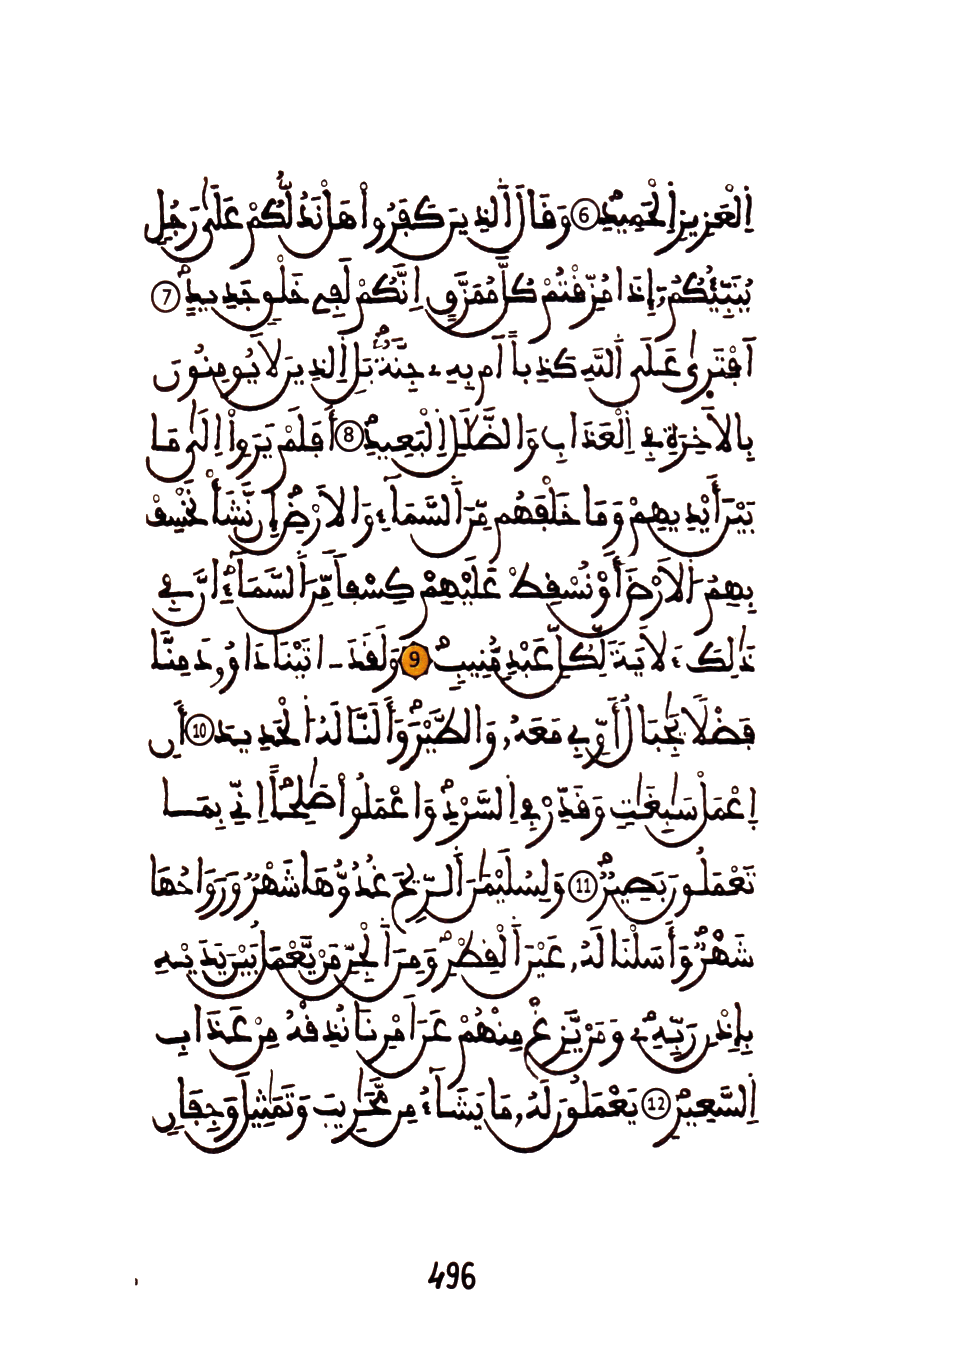 اِ۬لْعَزِيزِ اِ۬لْحَمِيدِۖ 6 وَقَالَ اَ۬لذِينَ كَفَرُواْ هَلْ نَدُلُّكُمْ عَلَىٰ رَجُلٖ
يُنَبِّئُكُمُۥٓ إِذَا مُزِّقْتُمْ كُلَّ مُمَزَّقٍ اِنَّكُمْ لَفِے خَلْقٖ جَدِيدٍۖ 7
اَفْتَر۪ىٰ عَلَى اَ۬للَّهِ كَذِباً اَم بِهِۦ جِنَّةُۢۖ بَلِ اِ۬لذِينَ لَا يُومِنُونَ
بِالَاخِرَةِ فِے اِ۬لْعَذَابِ وَالضَّلَٰلِ اِ۬لْبَعِيدِۖ 8 أَفَلَمْ يَرَوِاْ اِلَىٰ مَا
بَيْنَ أَيْدِيهِمْ وَمَا خَلْفَهُم مِّنَ اَ۬لسَّمَآءِ وَالَارْضِۖ إِن نَّشَأْ نَخْسِفْ
بِهِمُ اُ۬لَارْضَ أَوْ نُسْقِطْ عَلَيْهِمْ كِسْفاٗ مِّنَ اَ۬لسَّمَآءِۖ اِنَّ فِے
ذَٰلِكَ ءَلَايَةٗ لِّكُلِّ عَبْدٖ مُّنِيبٖۖ 9 وَلَقَدَ ـ اتَيْنَا دَاوُۥدَ مِنَّا
فَضْلاٗۖ يَٰجِبَالُ أَوِّبِے مَعَهُۥ وَالطَّيْرَۖ وَأَلَنَّا لَهُ اُ۬لْحَدِيدَ 10 أَنِ
اِعْمَلْ سَٰبِغَٰتٖ وَقَدِّرْ فِے اِ۬لسَّرْدِۖ وَاعْمَلُواْ صَٰلِحاًۖ اِنِّے بِمَا
تَعْمَلُونَ بَصِيرٞۖ 11 وَلِسُلَيْمَٰنَ اَ۬لرِّيحَ غُدُوُّهَا شَهْرٞ وَرَوَاحُهَا
شَهْرٞۖ وَأَسَلْنَا لَهُۥ عَيْنَ اَ۬لْقِطْرِۖ وَمِنَ اَ۬لْجِنِّ مَنْ يَّعْمَلُ بَيْنَ يَدَيْهِ
بِإِذْنِ رَبِّهِۦۖ وَمَنْ يَّزِغْ مِنْهُمْ عَنَ اَمْرِنَا نُذِقْهُ مِنْ عَذَابِ
اِ۬لسَّعِيرِۖ 12 يَعْمَلُونَ لَهُۥ مَا يَشَآءُ مِن مَّحَٰرِيبَ وَتَمَٰثِيلَ وَجِفَانٖ
496